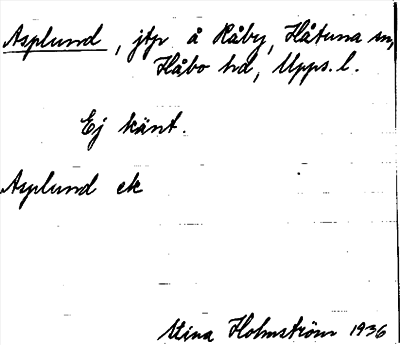 Asplund, jtp å Råby, Håtuna sn,
Håbo hd, Upps. l.
Ej känt.
Asplund ek
Stina Holmström 1936